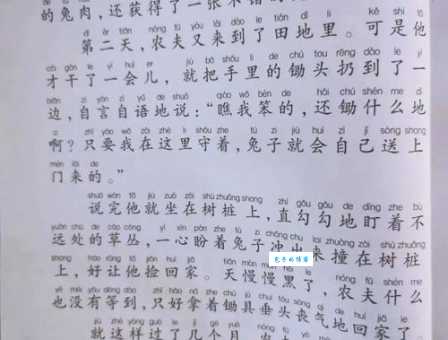 的兔肉，还获得了一张不错的
dì èr tiān nóng fū yòu lái dào le tián dì lǐ kě shì tā
第二天，农夫又来到了田地里。可是他
cái gàn le yí huì er jiù bǎ shǒu lǐ de chú tou rēng dào le yì
才干了一会儿，就把手里的锄头扔到了一
biān zì yán zì yǔ de shuō qiáo wǒ bèn de hái chú shén me dì
边，自言自语地说：“瞧我笨的，还锄什么地
a zhǐ yào wǒ zài zhè lǐ shǒu zhe tù zi jiù huì zì jǐ sòng shàng
啊？只要我在这里守着，兔子就会自己送上
mén lái de
门来的。”
shuō wán tā jiù zuò zài shù zhuāng shang zhí gōu gōu de dīng zhe bù
说完他就坐在树桩上，直勾勾地盯着不
yuǎn chù de cǎo cóng yì xīn pàn zhe tù zi chōng chu lai zhuàng zài shù zhuāng
远处的草丛，一心盼着兔子冲出来撞在树桩
shang hǎo ràng tā jiǎn huí jiā tiān màn màn hēi le nóng fū shén me
上，好让他捡回家。天慢慢黑了，农夫什么
yě méi yǒu děng dào zhǐ hǎo ná zhe chú jù chuí tóu sàng qì de huí jiā le
也没有等到，只好拿着锄具垂头丧气地回家了。
jiù zhè yàng guò le jǐ gè yuè nóng fū
就这样过了几个月，农夫